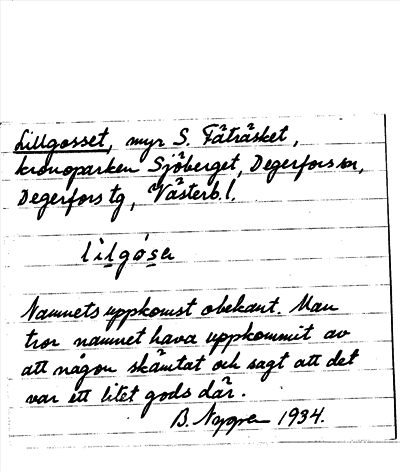 Lillgosset, myr S. Fäträsket,
kronoparken Sjöberget, Degerfors sn,
Degerfors tg, Västerb. l.
lìlgó˙sɐ
Namnets uppkomst obekant. Man
tror namnet hava uppkommit av
att någon skämtat och sagt att det
var ett litet gods där.
B. Nygren 1934.